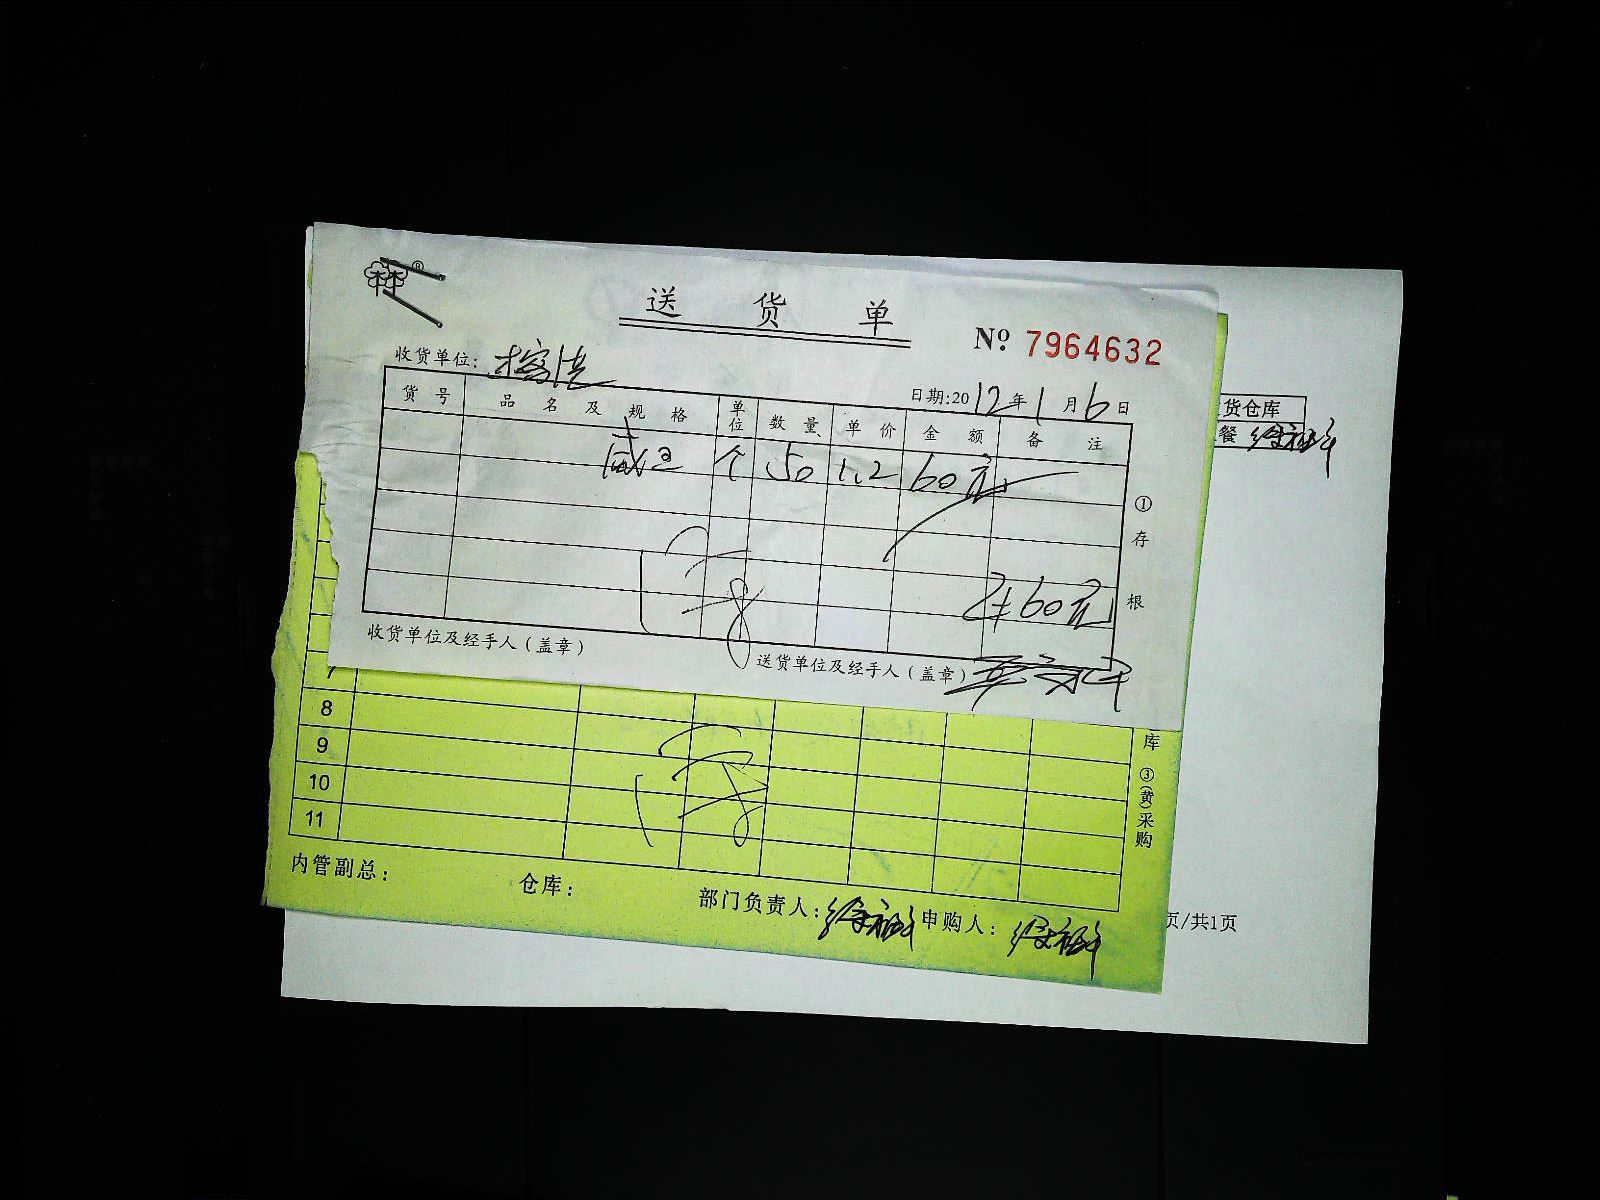 送 货 单
Nº 7964632
收货单位:
日期:2012年1月6日
货号 品名及规格 单位 数量 单价 金额 备注
个 50 1.2 60元
60元
①存根
收货单位及经手人(盖章)
送货单位及经手人(盖章)
货仓库
餐
7
8
9
10
11
库 ③(黄)采购
内管副总: 仓库: 部门负责人: 申购人:
页/共1页